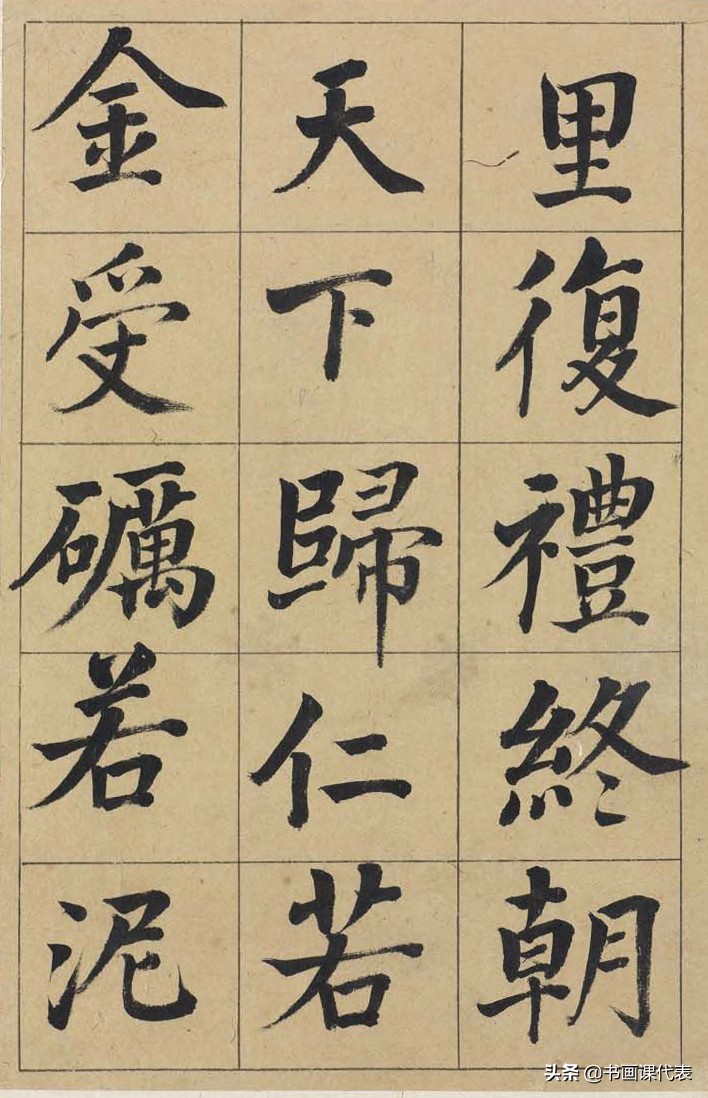 里復禮終朝
天下歸仁若
金受礪若泥
头条 @书画课代表